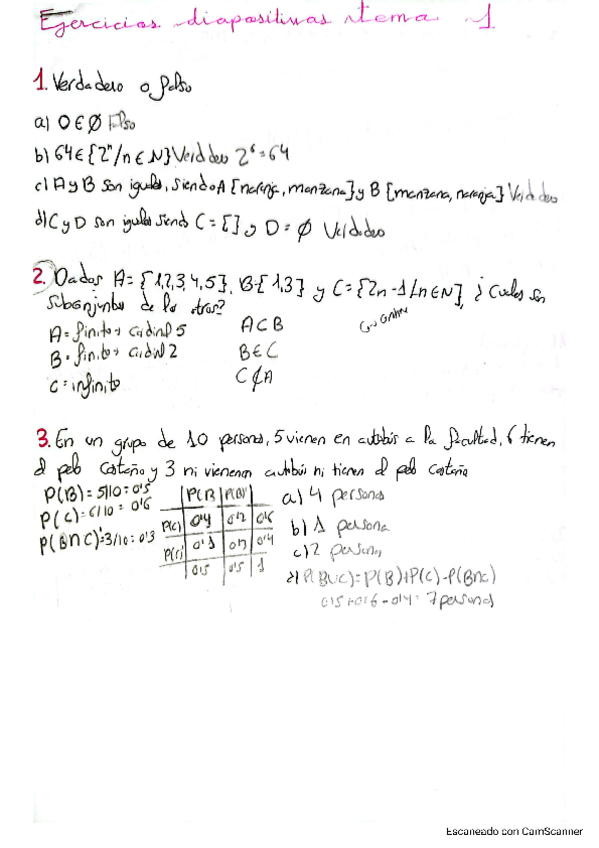 Ejercicios diapositivas tema 1
1. Verdadero o falso
a) 0 ∈ ∅ Falso
b) 64 ∈ {2ⁿ/n ∈ N} Verdadero 2⁶ = 64
c) A y B son iguales, siendo A {naranja, manzana} y B {manzana, naranja} Verdadero
d) C y D son iguales siendo C = { } y D = ∅ Verdadero
2. Dados A = {1,2,3,4,5}, B = {1,3} y C = {2n - 1/n ∈ N}, ¿Cuáles son
subconjuntos de los otros?
A = finito → cardinal 5 A ⊂ B
B = finito → cardinal 2 B ∈ C
C = infinito C ⊄ A
3. En un grupo de 10 personas, 5 vienen en autobús a la facultad, 6 tienen
el pelo castaño y 3 ni vienen en autobús ni tienen el pelo castaño
P(B) = 5/10 = 0'5
P(C) = 6/10 = 0'6
P(B∩C)' = 3/10 = 0'3
P(B) P(B')
P(C) 0'4 0'2 0'6
P(C) 0'1 0'3 0'4
0'5 0'5 1
a) 4 personas
b) 1 persona
c) 2 personas
d) P(B∪C) = P(B) + P(C) - P(B∩C)
0'5 + 0'6 - 0'4 = 7 personas
Escaneado con CamScanner